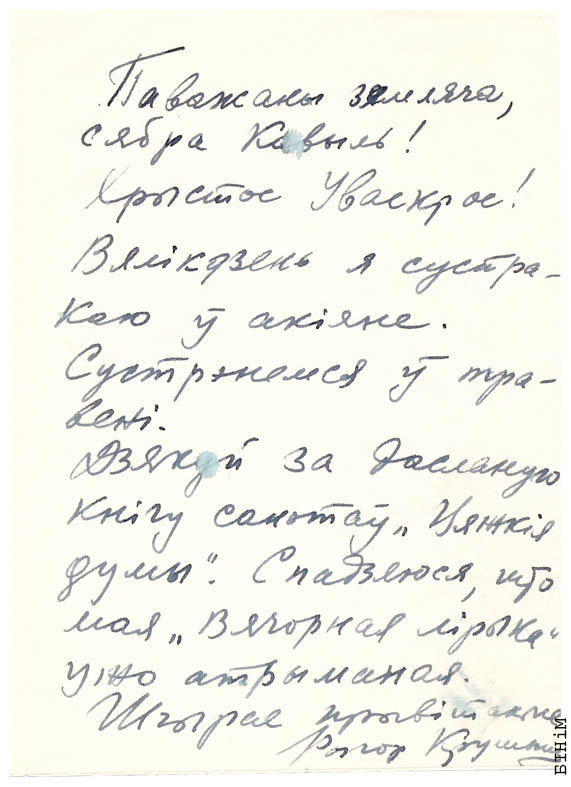 Паважаны земляча,
сябра Кавыль!
Хрыстос Уваскрос!
Вялікдзень я сустра-
каю ў акіяне.
Сустрэнемся ў тра-
вені.
Дзякуй за дасланую
кнігу санэтаў „Цяжкія
думы“. Спадзяюся, што
мая „Вячорная лірыка“
ужо атрыманая.
Шчырае прывітаньне
Рыгор Крушына
БІНіМ